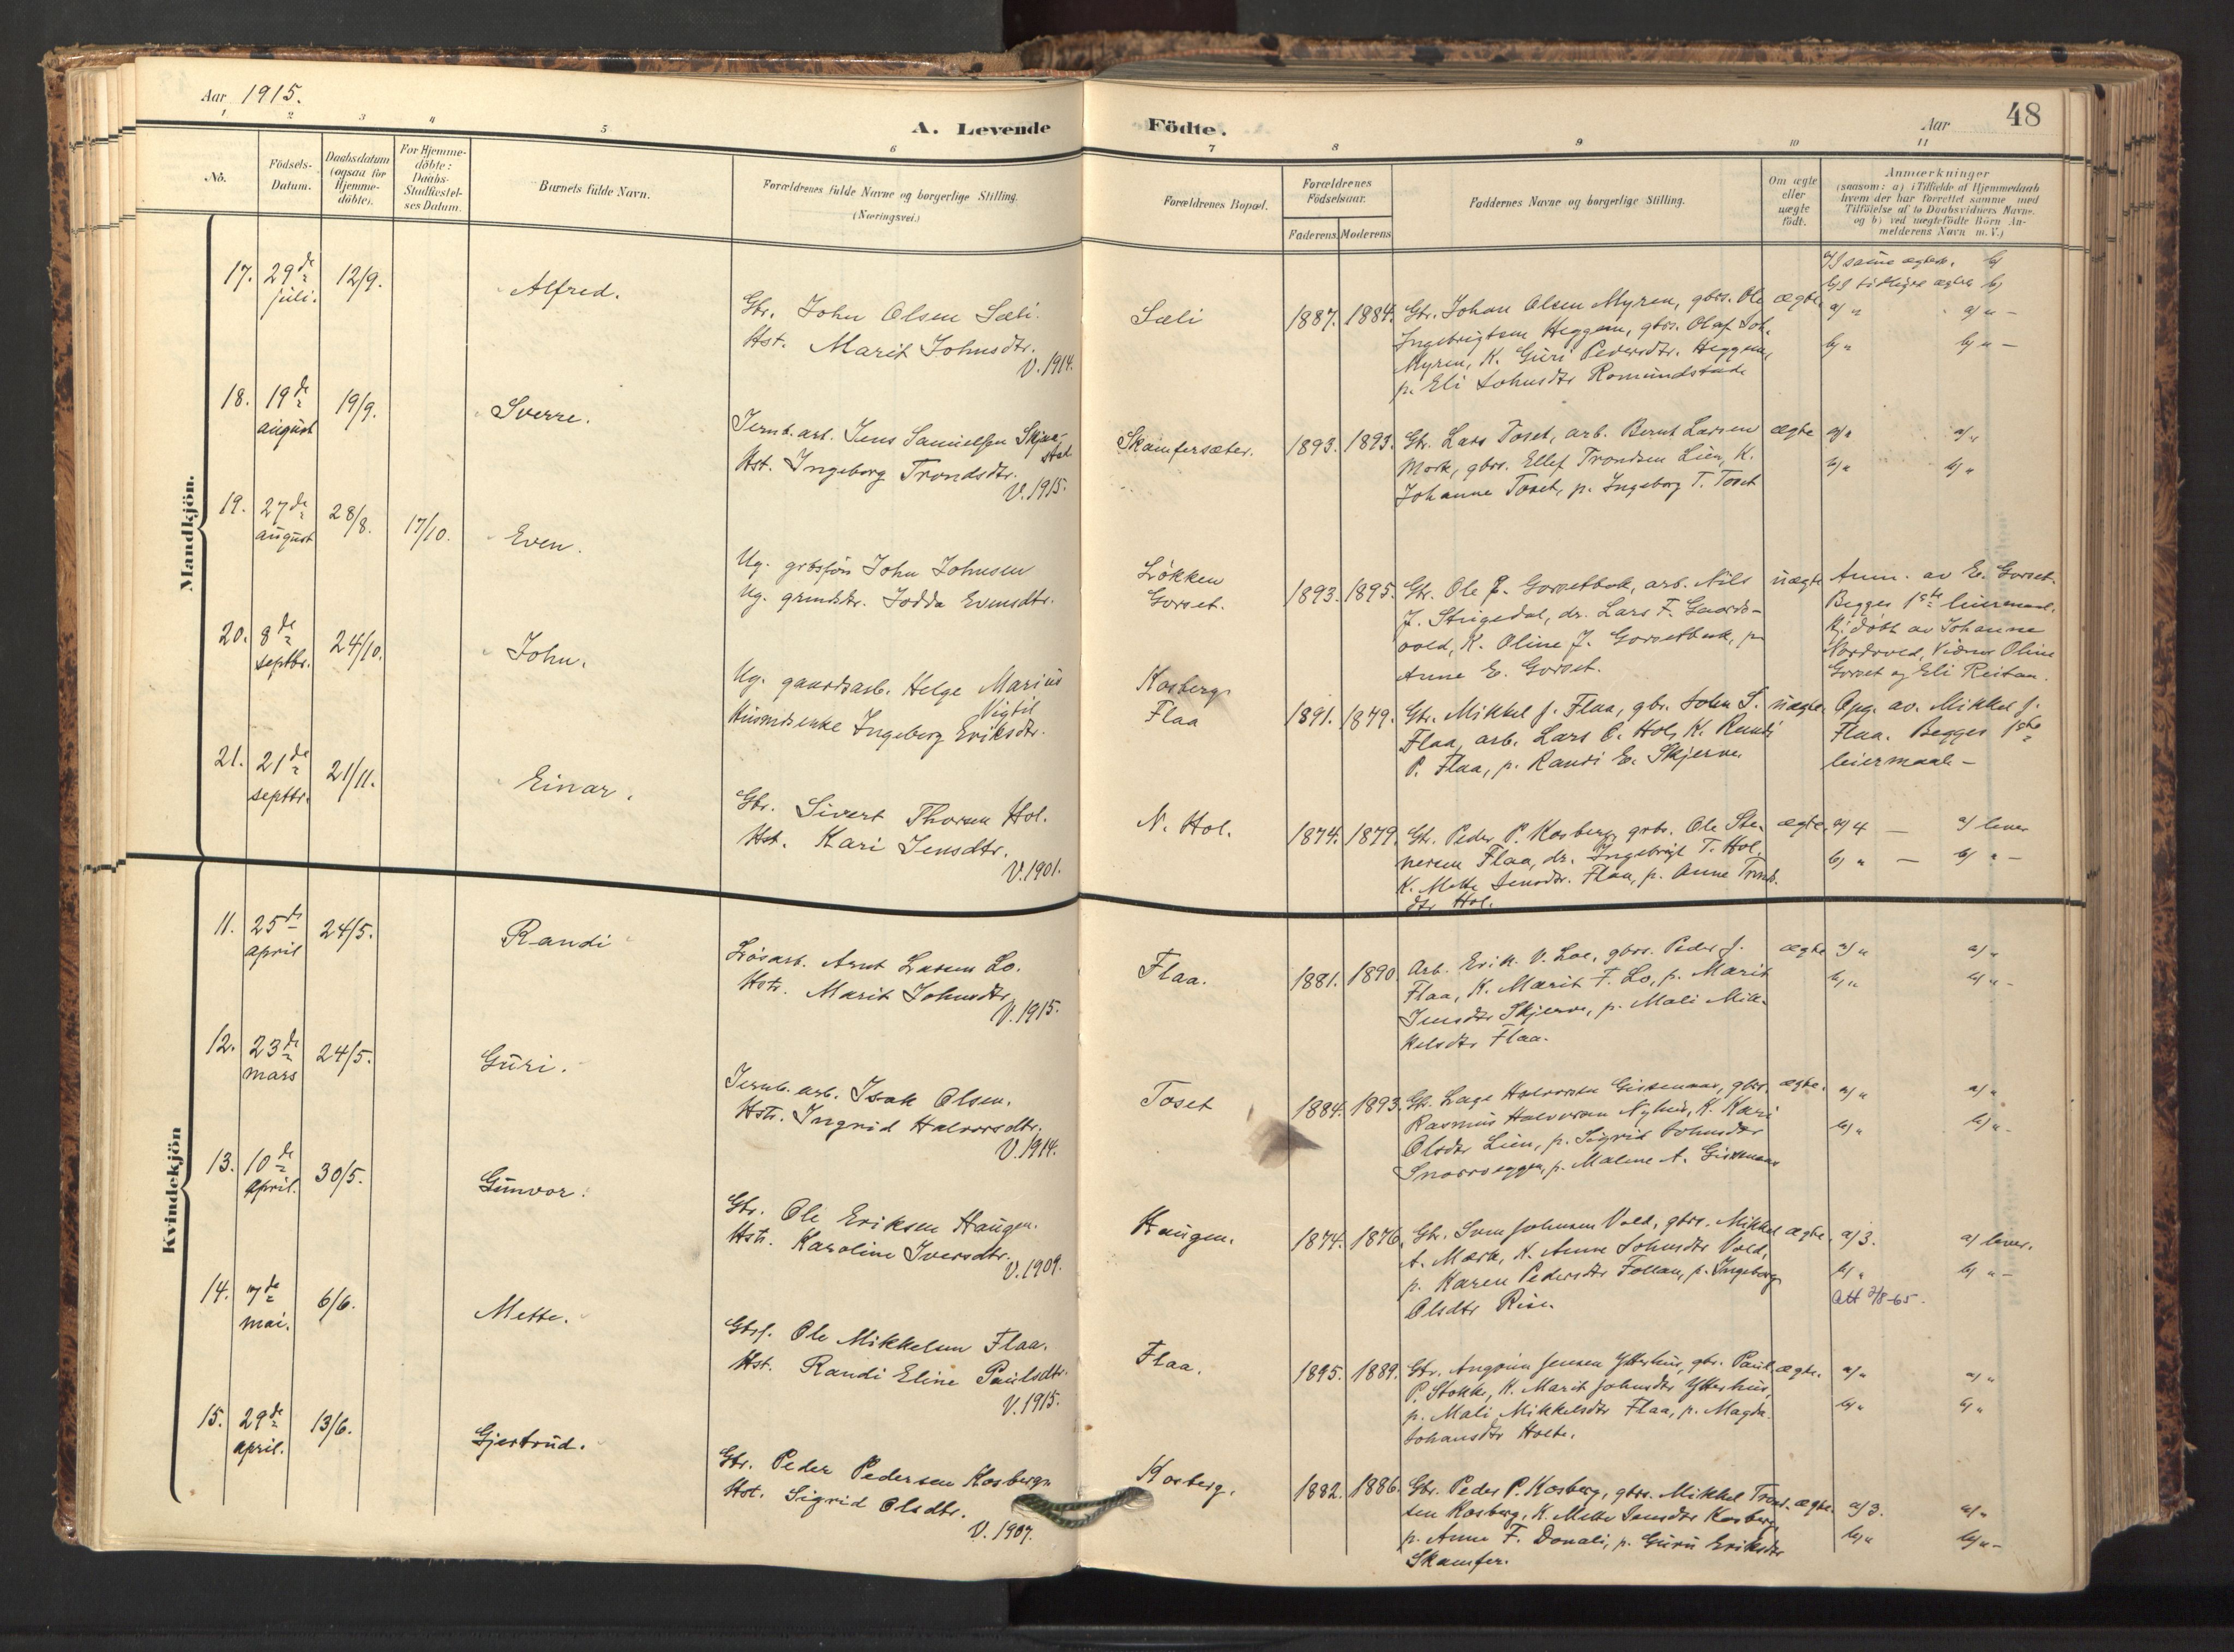 Aar 1915.
A. Levende
Födte.
Aar
48
1 2 3 4 5 6 7 8 9 10 11
No.
Födsels-
Datum.
Daabsdatum
(ogsaa for
Hjemme-
döbte).
For Hjemme-
döbte:
Daabs-
Stadfæstel-
ses Datum.
Barnets fulde Navn.
Forældrenes fulde Navne og borgerlige Stilling.
(Næringsvei.)
Forældrenes Bopæl.
Forældrenes
Födselsaar.
Faderens. Moderens
Faddernes Navne og borgerlige Stilling.
Om ægte
eller
uægte
födt.
Anmærkninger
(saasom: a) i Tilfælde af Hjemmedaab
hvem der har forrettet samme med
Tilföielse af to Daabsvidners Navne.
og b) ved uægtefödte Börn An-
melderens Navn m. V.)
Mandkjön.
17. 29de juli. 12/9. Alfred.
Gbr. John Olsen Sæli.
Hst. Marit Johnsdtr.
V. 1914.
Sæli 1887. 1884.
Gbr. Johan Olsen Myren, gbrs. Ole
Ingebrigtsen Heggem, gbrs. Olaf Joh.
Myren, K. Guri Pedersdtr. Heggem,
p. Eli Johnsdtr Romundstad
ægte
a/ " a/ " -
b/ " b/ " -
18. 19de august 19/9. Sverre.
Jernb. arb. Jens Samuelsen
Hst. Ingeborg Trondsdtr.
V. 1915.
Skamfersæter. 1893. 1893.
Gbr. Lars Toset, arb. Bernt Larsen
Mork, gbrs. Ellef Trondsen Lien, K.
Johanne Toset, p. Ingeborg T. Toset
ægte a/ " a/ "
b/ " b/ "
19. 27de august 28/8. 17/10. Even.
Ug. grdsfön John Johnsen
Ug. Jodda Evensdtr.
Lökken
Gorset. 1893. 1895.
Gbr. Ole J. Gorsetbak, arb. Nils
J. Stigedal, dr. Lars F. Gaards-
vold, K. Oline J. Gorsetbak, p.
Anne E. Gorset.
uægte
Anm. av E. Gorset.
Begges 1ste leiermaal.
Hj. döbt av Johanne
Nordvold, Vidner Oline
Gorset og Eli Reitan.
20. 8de septbr. 24/10. John.
Ug. gaardsarb. Helge Marius
Vigtil
Husmdsenke Ingeborg Eriksdtr.
Kosberg
Flaa 1891. 1879.
Gbr. Mikkel J. Flaa, gbr. John S.
Flaa, arb. Lars C. Hol, K. Randi
P. Flaa, p. Randi E. Skjerve
uægte.
Opg. av. Mikkel J.
Flaa. Begges 1ste
leiermaal -
21. 21de septbr. 21/11. Einar.
Gbr. Sivert Thoresen Hol.
Hst. Kari Jensdtr.
V. 1901.
N. Hol. 1874. 1879.
Gbr. Peder P. Kosberg, gbr. Ole Ste-
nersen Flaa, dr. Ingebrigt T. Hol,
K. Mette Jensdtr. Flaa, p. Anne Trond-
dtr Hol.
ægte. a/ 4 — a/ lever
b/ " — b/ " -
Kvindekjön
11. 25de april 24/5. Randi
Lösarb. Arnt Larsen Lo.
Hst. Marit Johnsdtr.
V. 1915.
Flaa. 1881. 1890
Arb. Erik V. Loe, gbrs. Peder J.
Flaa, K. Marit T. Lo, p. Marit
Jensdtr Skjerve, p. Mali Mik-
kelsdtr Flaa.
ægte a/ " a/ "
b/ " b/ " -
12. 23de mars 24/5. Guri.
Jernb. arb. Isak Olsen.
Hst. Ingrid Halvorsdtr.
V. 1914.
Toset 1884. 1893.
Gbr. Lage Halvorsen Gissenaas, gbrs.
Rasmus Halvorsen Nyhus, K. Kari
Olsdtr Lien, p. Sigrid Johnsdtr
Snoasroeggen, p. Malene A. Gissenaas
ægte. a/ " a/ "
b/ " b/ " -
13. 10de april. 30/5. Gunvor.
Gbr. Ole Eriksen Haugen.
Hst. Karoline Iversdtr.
V. 1909.
Haugen. 1874. 1876.
Gbr. Sven Johnsen Vold, gbrs. Mikkel
A. Mærk, K. Anne Johnsdtr Vold,
p. Karen Pedersdtr Follan, p. Ingeborg
Olsdtr Rise.
ægte. a/ 3. a/ lever.
b/ " b/ " -
Att 2/8-65.
14. 7de mai. 6/6. Mette.
Gbrf. Ole Mikkelsen Flaa.
Hst. Randi Eline Paulsdtr.
V. 1915.
Flaa. 1895. 1889.
Gbr. Angrim Jensen Ytterhus, gbr. Paul
P. Stokke, K. Marit Johnsdtr Ytterhus,
p. Mali Mikkelsdtr Flaa, p. Magda
Johansdtr Holte.
ægte. a/ " a/ "
b/ " b/ "
15. 29de april. 13/6. Gjertrud.
Gbr. Peder Pedersen Kosberg
Hst. Sigrid Olsdtr.
V. 1907.
Kosberg. 1882. 1886.
Gbr. Peder P. Kosberg, gbrs. Mikkel Trond-
sen Kosberg, K. Mette Jensdtr Kosberg,
p. Anne F. Donali, p. Guru Eriksdtr
Skamfer.
ægte. a/ 3. a/ "
b/ " b/ " -